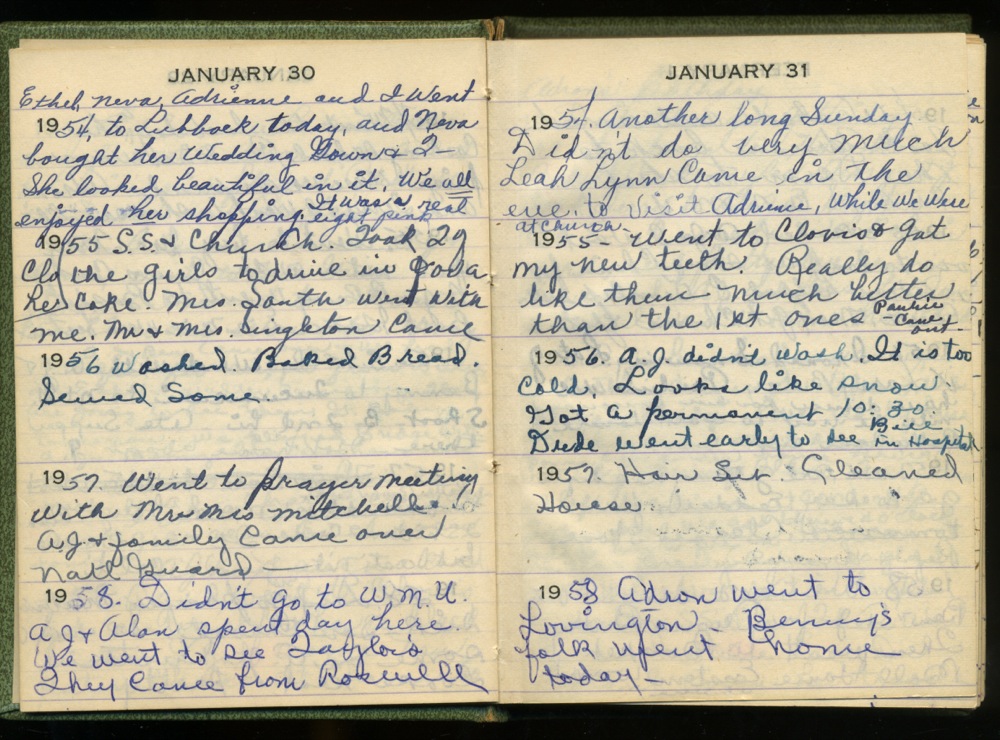 JANUARY 30
Ethel, Neva, Adrienne and I went
1954, to Lubbock today, and Neva
bought her Wedding Gown & 2-
She looked beautiful in it. We all
enjoyed her shopping. It was a real
eight pink
1955 S.S. & Church. Took 29
the girls to drive in for a
Coke. Mrs. South went with
me. Mr & Mrs. Singleton Came
1956 Washed. Baked Bread.
Sewed Some.
1957. Went to prayer meeting
with Mr & Mrs Mitchell.
A.J. & family Came over
Natl Guard —
1958. Didn't go to W.M.U.
A J & Alan spent day here.
We went to see Taylors
They Came from Roswell
JANUARY 31
1954. Another long Sunday
Didn't do very much
Leah Lynn Came in the
eve. to visit Adrienne, While We Were
at Church.
1955- Went to Clovis & got
my new teeth. Really do
like them much better
than the 1st ones Pankie
Came
out-
1956. A.J. didn't wash. It is too
Cold. Looks like snow.
Got a permanent 10:30.
Dude went early to see Bill
in Hospital
1957. Hair Set. Cleaned
House.
1958 Adron went to
Lovington. Benny's
folk went home
today-